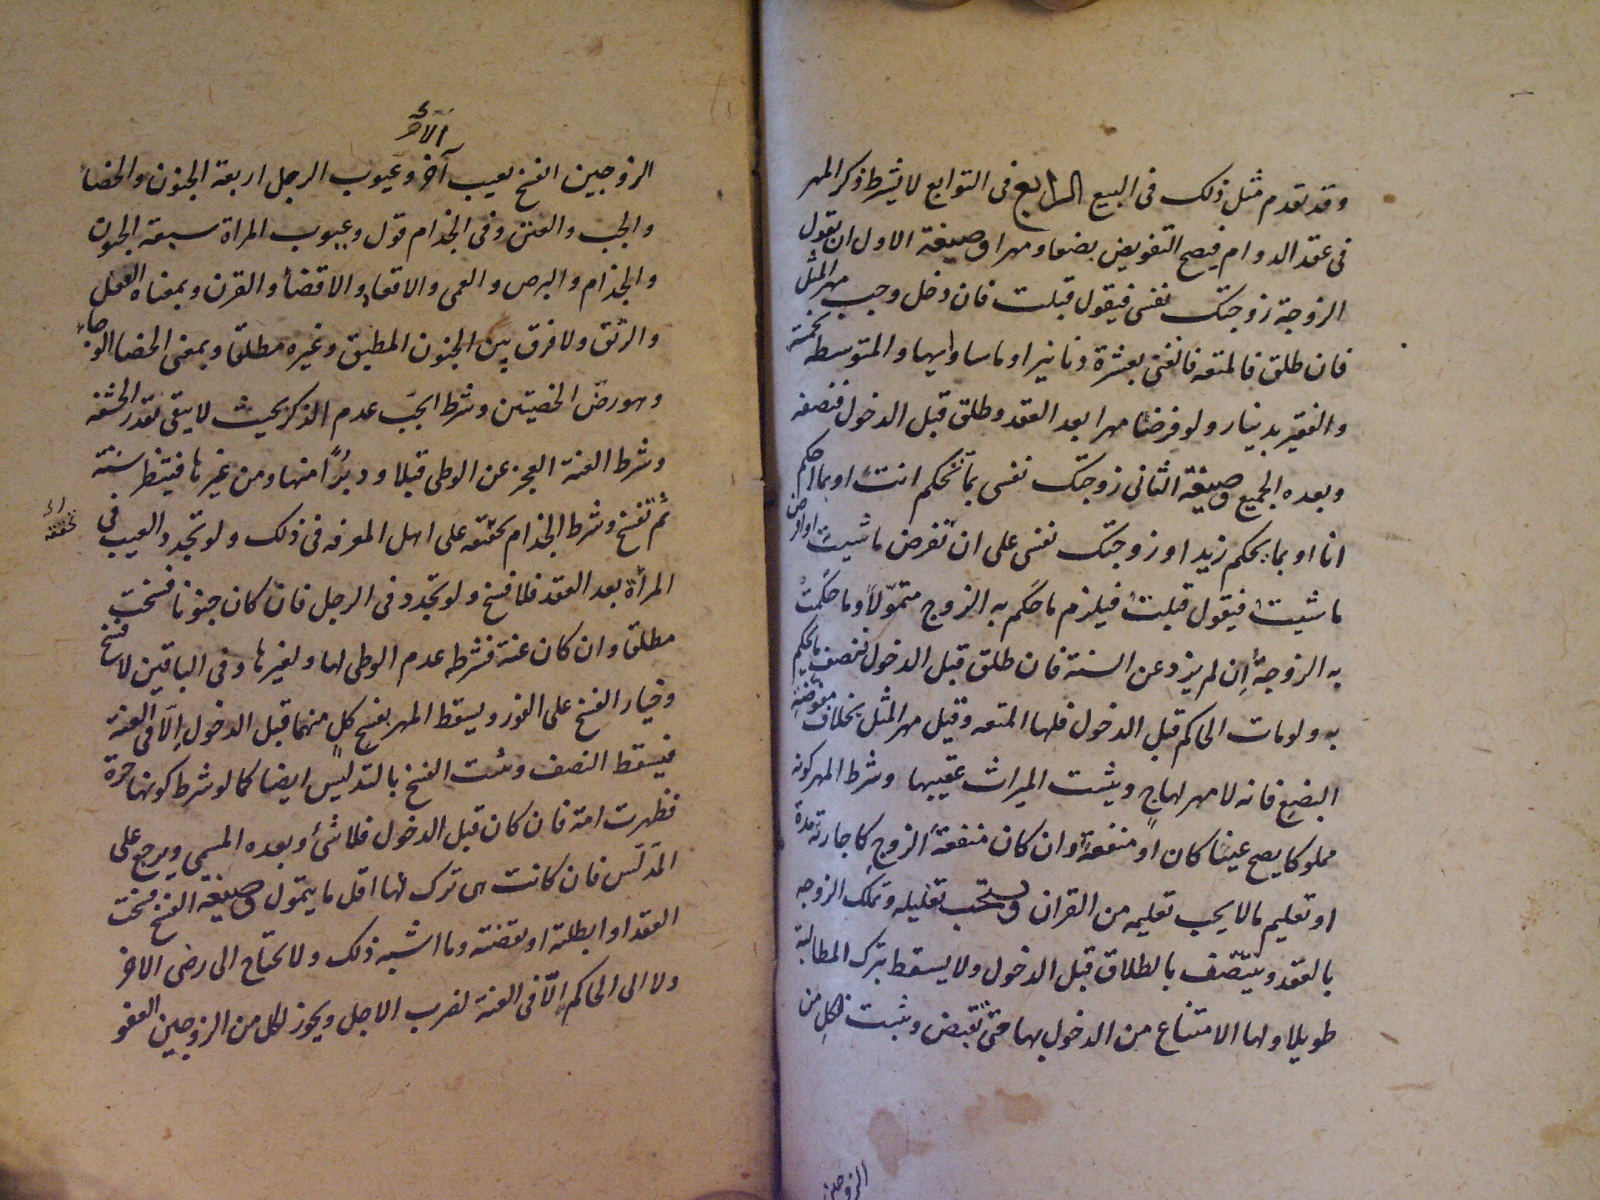 وقد تقدم مثل ذلك فى البيع الرابع فى التوابع لا يشرط ذكر المهر
فى عقد الدوام فيصح التفويض بضعا ومهرا وصيغة الاول ان تقول
الزوجة زوجتك نفسى فيقول قبلت فان دخل وجب مهر المثل
فان طلق فالمتعه فالغنى بعشرة دنانير او ما ساواها والمتوسط بخمسة
والفقير بدينار ولو فرضا مهرا بعد العقد وطلق قبل الدخول فنصفه
وبعده الجميع وصيغة الثانى زوجتك نفسى بما تحكم انت او بما احكم
انا او بما يحكم زيد او زوجتك نفسى على ان تفرض ما شيت او افرض
ما شيت فيقول قبلت فيلزم ما حكم به الزوج متمولا وما حكمت
به الزوجة إن لم يزد عن السنة فان طلق قبل الدخول فنصف ما يحكم
به ولو مات الحاكم قبل الدخول فلها المتعه وقيل مهر المثل بخلاف مفوضة
البضع فانه لا مهر لها ويثبت الميراث عقيبها وشرط المهر كونه
مملوكا يصح عينا كان او منفعة وان كان منفعة الزوج كاجارته مدة
او تعليم مالا يجب تعليمه من القران ويستحب تقليله وتملك الزوجه
بالعقد ويتنصف بالطلاق قبل الدخول ولا يسقط بترك المطالبة
طويلا ولها الامتناع من الدخول بها حتى تقبض ويثبت لكل من
الزوجين
الآخر
الزوجين الفسخ بعيب آخر وعيوب الرجل اربعة الجنون والخصاء
والجب والعنن وفى الجذام قول وعيوب المراة سبعة الجنون
والجذام والبرص والعمى والاقعاد والافضاء والقرن وبمعناه العفل
والرتق ولا فرق بين الجنون المطبق وغيره مطلقا وبمعنى الخصا الوجاء
وهو رض الخصيتين وشرط الجب عدم الذكر بحيث لا يبقى قدر الحشفه
وشرط العنة العجز عن الوطى قبلا ودبرا منها ومن غيرها فينتظر سنة
ثم تفسخ وشرط الجذام تحققه على اهل المعرفه فى ذلك ولو تجدد العيب فى
المرأة بعد العقد فلا فسخ ولو تجدد فى الرجل فان كان جنونا فسخت
مطلقا وان كان عنة فشرطه عدم الوطى لها ولغيرها وفى الباقين لا فسخ
وخيار الفسخ على الفور ويسقط المهر بفسخ كل منهما قبل الدخول الا فى العنة
فيسقط النصف ويثبت الفسخ بالتدليس ايضا كما لو شرط كونها حرة
فظهرت امة فان كان قبل الدخول فلا شئ وبعده المسمى ويرجع على
المدلس فان كانت هى ترك لها اقل ما يتمول وصيغة الفسخ فسخت
العقد او ابطلته او نقضته وما اشبه ذلك ولا تحتاج الى رضى الاخر
ولا الى الحاكم الا فى العنة لضرب الاجل ويجوز لكل من الزوجين العفو